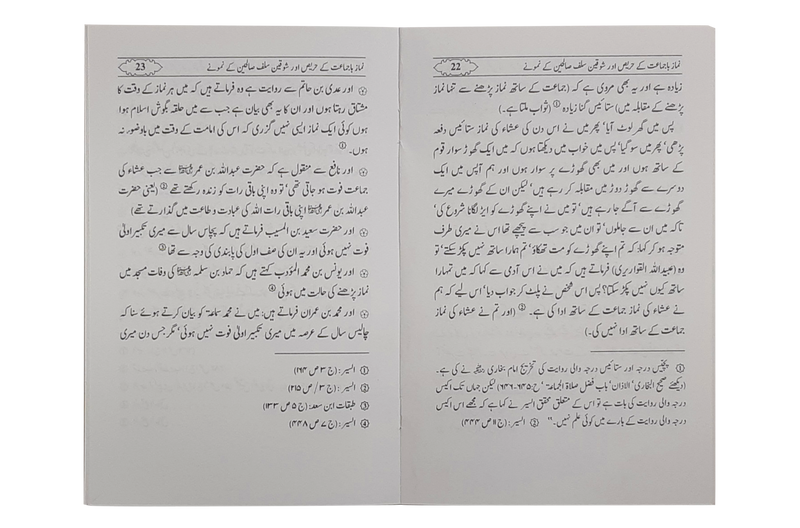 نماز باجماعت کے حریص اور شوقین سلف صالحین کے نمونے
22
زیادہ ہے اور یہ بھی مروی ہے کہ (جماعت کے ساتھ نماز پڑھنے سے تنہا نماز
پڑھنے کے مقابلہ میں) ستائیس گنا زیادہ ① (ثواب ملتا ہے)۔
پس میں گھر لوٹ آیا' پھر میں نے اس دن کی عشاء کی نماز ستائیس دفعہ
پڑھی' پھر میں سو گیا' پس میں خواب میں دیکھتا ہوں کہ میں ایک گھوڑ سوار قوم
کے ساتھ ہوں اور میں بھی گھوڑے پر سوار ہوں اور ہم آپس میں ایک
دوسرے سے گھوڑ دوڑ میں مقابلہ کر رہے ہیں' لیکن ان کے گھوڑے میرے
گھوڑے سے آگے جا رہے ہیں' تو میں نے اپنے گھوڑے کو ایڑ لگانا شروع کی'
تاکہ میں ان سے جا ملوں' تو ان میں جو سب سے پیچھے تھا اس نے میری طرف
متوجہ ہو کر کہا: کہ تم اپنے گھوڑے کو مت تھکاؤ' تم ہمارا ساتھ نہیں پکڑ سکتے' تو
وہ (عبیداللہ القواریری) فرماتے ہیں کہ میں نے اس آدمی سے کہا کہ میں تمہارا
ساتھ کیوں نہیں پکڑ سکتا؟ پس اس شخص نے پلٹ کر جواب دیا' اس لیے کہ ہم
نے عشاء کی نماز جماعت کے ساتھ ادا کی ہے۔ ② (اور تم نے عشاء کی نماز
جماعت کے ساتھ ادا نہیں کی۔)
① پچیس درجہ اور ستائیس درجہ والی روایت کی تخریج امام بخاری رحمہ اللہ نے کی ہے۔
(دیکھئے صحیح البخاری' الاذان' باب فضل صلاۃ الجماعۃ' ح۔۶۴۵۔۶۴۶) لیکن جہاں تک اکیس
درجہ والی روایت کی بات ہے تو اس کے متعلق محقق السیر نے کہا ہے کہ مجھے اس اکیس
درجہ والی روایت کے بارے میں کوئی علم نہیں۔" ② السیر: (ج ۱۱ ص ۴۴۴)
نماز باجماعت کے حریص اور شوقین سلف صالحین کے نمونے
23
اور عدی بن حاتم سے روایت ہے وہ فرماتے ہیں کہ میں ہر نماز کے وقت کا
مشتاق رہتا ہوں اور ان کا یہ بھی بیان ہے جب سے میں حلقہ بگوش اسلام ہوا
ہوں کوئی ایک نماز ایسی نہیں گزری کہ اس کی اقامت کے وقت میں باوضو نہ
ہوں۔ ①
اور نافع سے منقول ہے کہ حضرت عبداللہ بن عمر رضی اللہ عنہما سے جب عشاء کی
جماعت فوت ہو جاتی تھی' تو وہ اپنی باقی رات کو زندہ رکھتے تھے ② (یعنی حضرت
عبداللہ بن عمر رضی اللہ عنہما اپنی باقی رات اللہ کی عبادت و طاعت میں گذارتے تھے)
اور حضرت سعید بن المسیب فرماتے ہیں کہ پچاس سال سے میری تکبیر اولیٰ
فوت نہیں ہوئی اور یہ ان کی صف اول کی پابندی کی وجہ سے تھا ③
اور یونس بن محمد المؤدب کہتے ہیں کہ حماد بن سلمہ کی وفات مسجد میں
نماز پڑھنے کی حالت میں ہوئی ④
اور محمد بن عمران فرماتے ہیں: میں نے محمد سماعۃ کو بیان کرتے ہوئے سنا کہ
چالیس سال کے عرصہ میں میری تکبیر اولیٰ فوت نہیں ہوئی' مگر جس دن میری
① السیر: (ج ۳ ص ۱۶۴)
② السیر: (ج ۳/ ص ۲۱۵)
③ طبقات ابن سعد: (ج ۵ ص ۱۳۳)
④ السیر: (ج ۷ ص ۴۴۸)